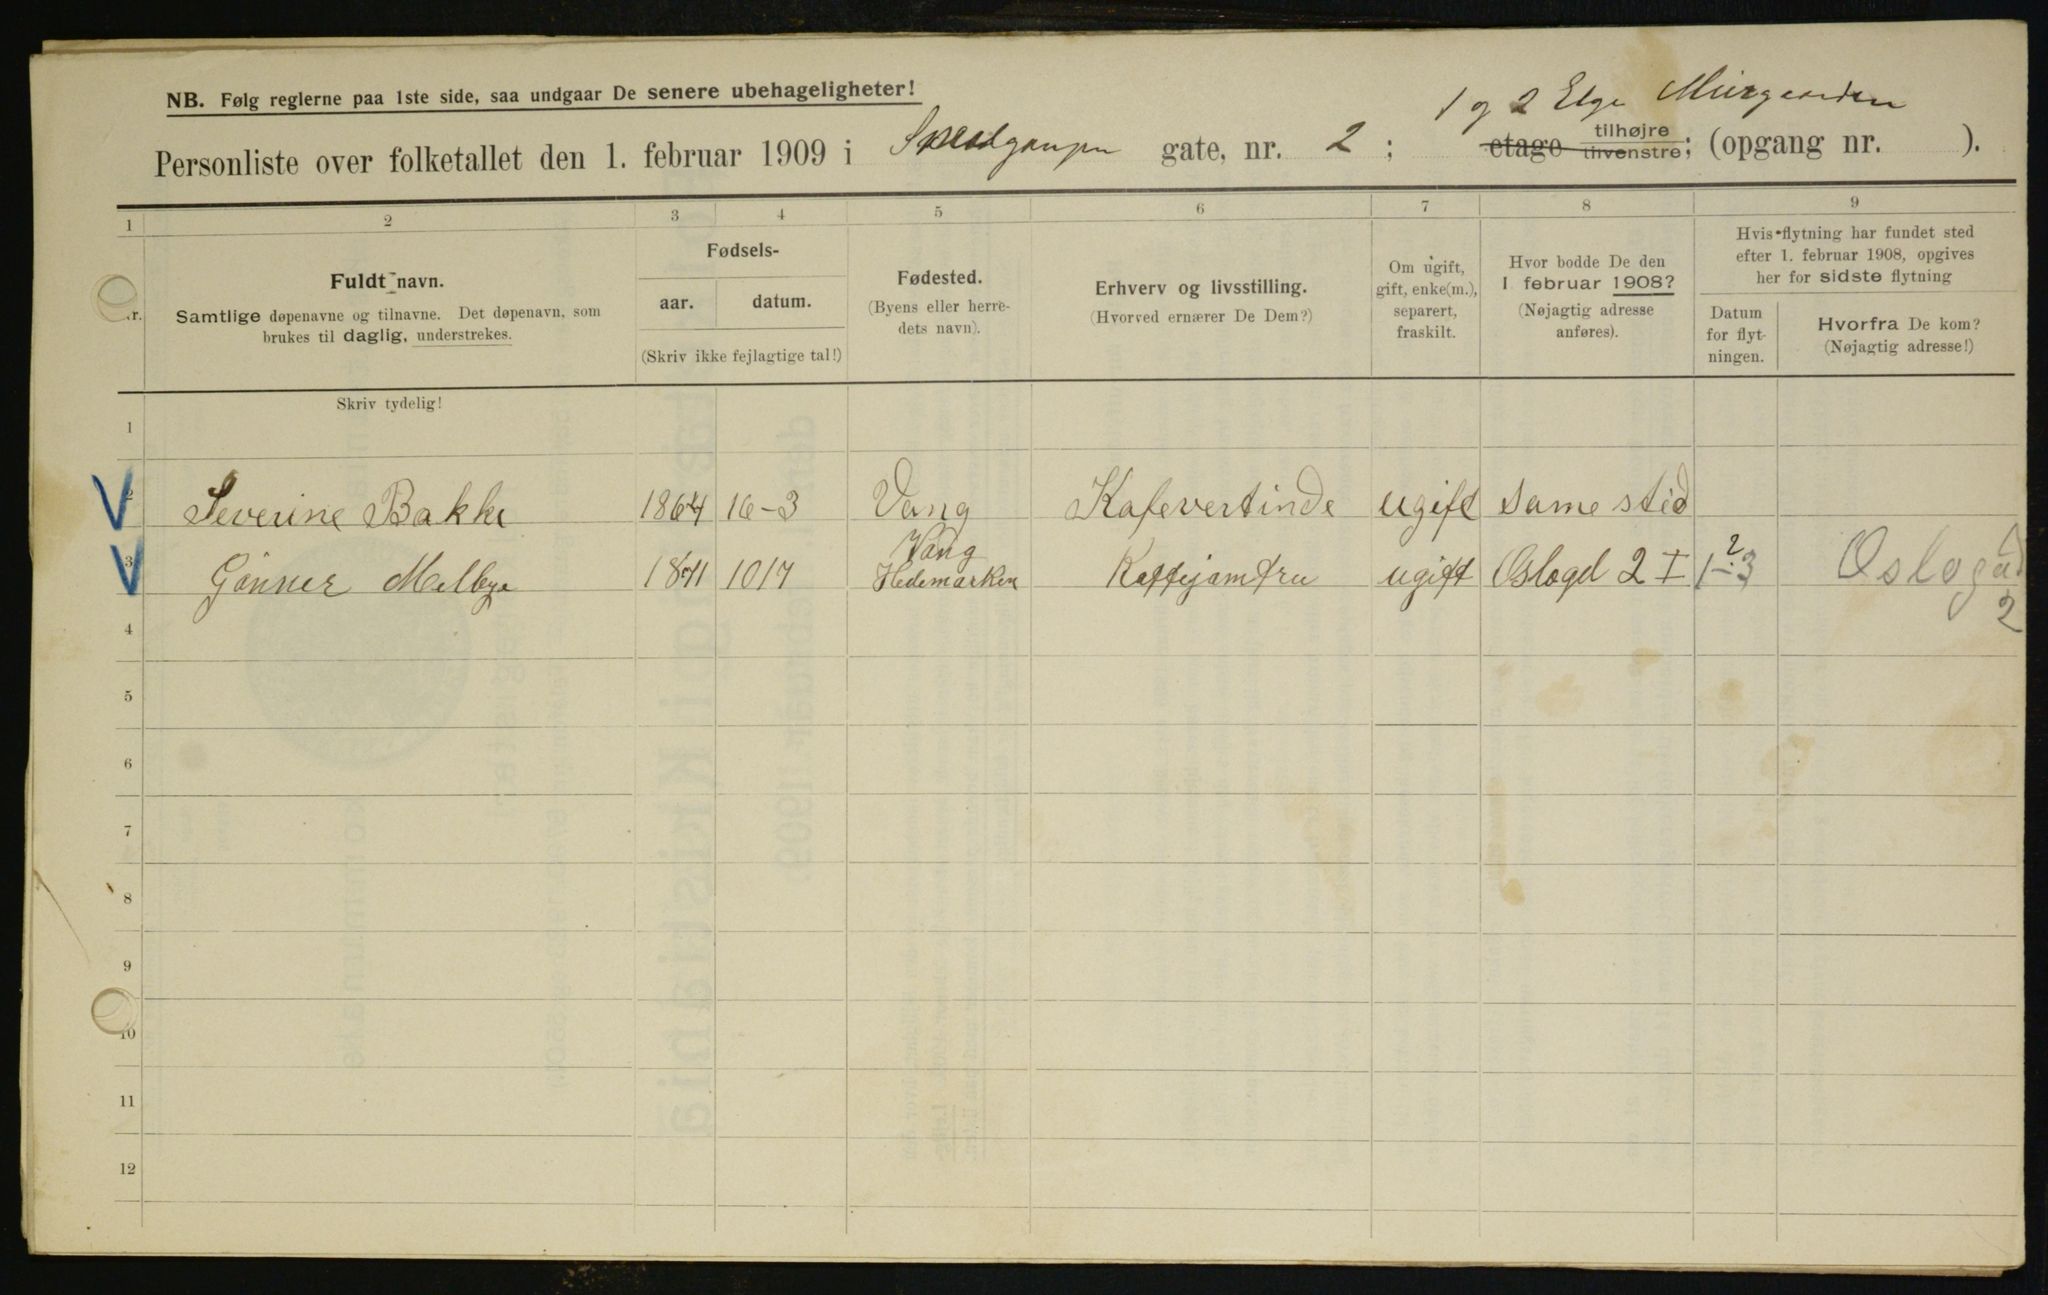 NB. Følg reglerne paa 1ste side, saa undgaar De senere ubehageligheter!
1 og 2 Etge Murgaarden
Personliste over folketallet den 1. februar 1909 i gate, nr. 2; etage tilhøjre tilvenstre; (opgang nr. ).
1 2 3 4 5 6 7 8 9
Nr.
Fuldt navn.
Samtlige døpenavne og tilnavne. Det døpenavn, som
brukes til daglig, understrekes.
Fødsels-
aar. datum.
(Skriv ikke fejlagtige tal!)
Fødested.
(Byens eller herre-
dets navn).
Erhverv og livsstilling.
(Hvorved ernærer De Dem?)
Om ugift,
gift, enke(m.),
separert,
fraskilt.
Hvor bodde De den
1 februar 1908?
(Nøjagtig adresse
anføres).
Hvis flytning har fundet sted
efter 1. februar 1908, opgives
her for sidste flytning
Datum
for flyt-
ningen.
Hvorfra De kom?
(Nøjagtig adresse!)
Skriv tydelig!
1
2 Severine Bakke 1864 16-3 Vang Kafevertinde ugift Samested
3 Gönner Melbye 1871 10/7 Vang Hedemarken Kaffejomfru ugift Oslogd 2 I 1/2-3 Oslogad 2
4
5
6
7
8
9
10
11
12